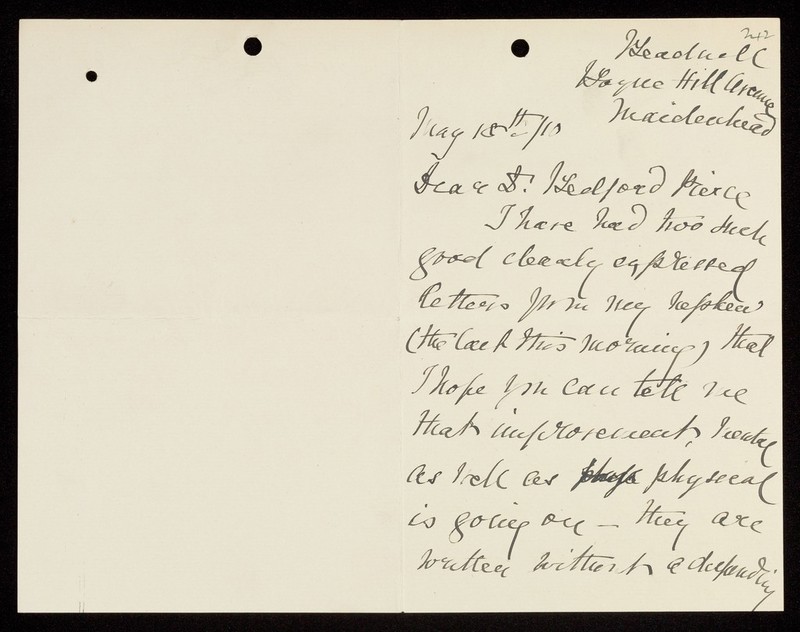 242
Headwell
Boyne Hill Avenue
Maidenhead
May 18th/10
Dear Dr. Bedford Pierce
I have had two such
good clearly expressed
letters from my nephew
(the last this morning) that
I hope you can tell me
that improvement, mental
as well as physical
is going on – they are
written without a desponding